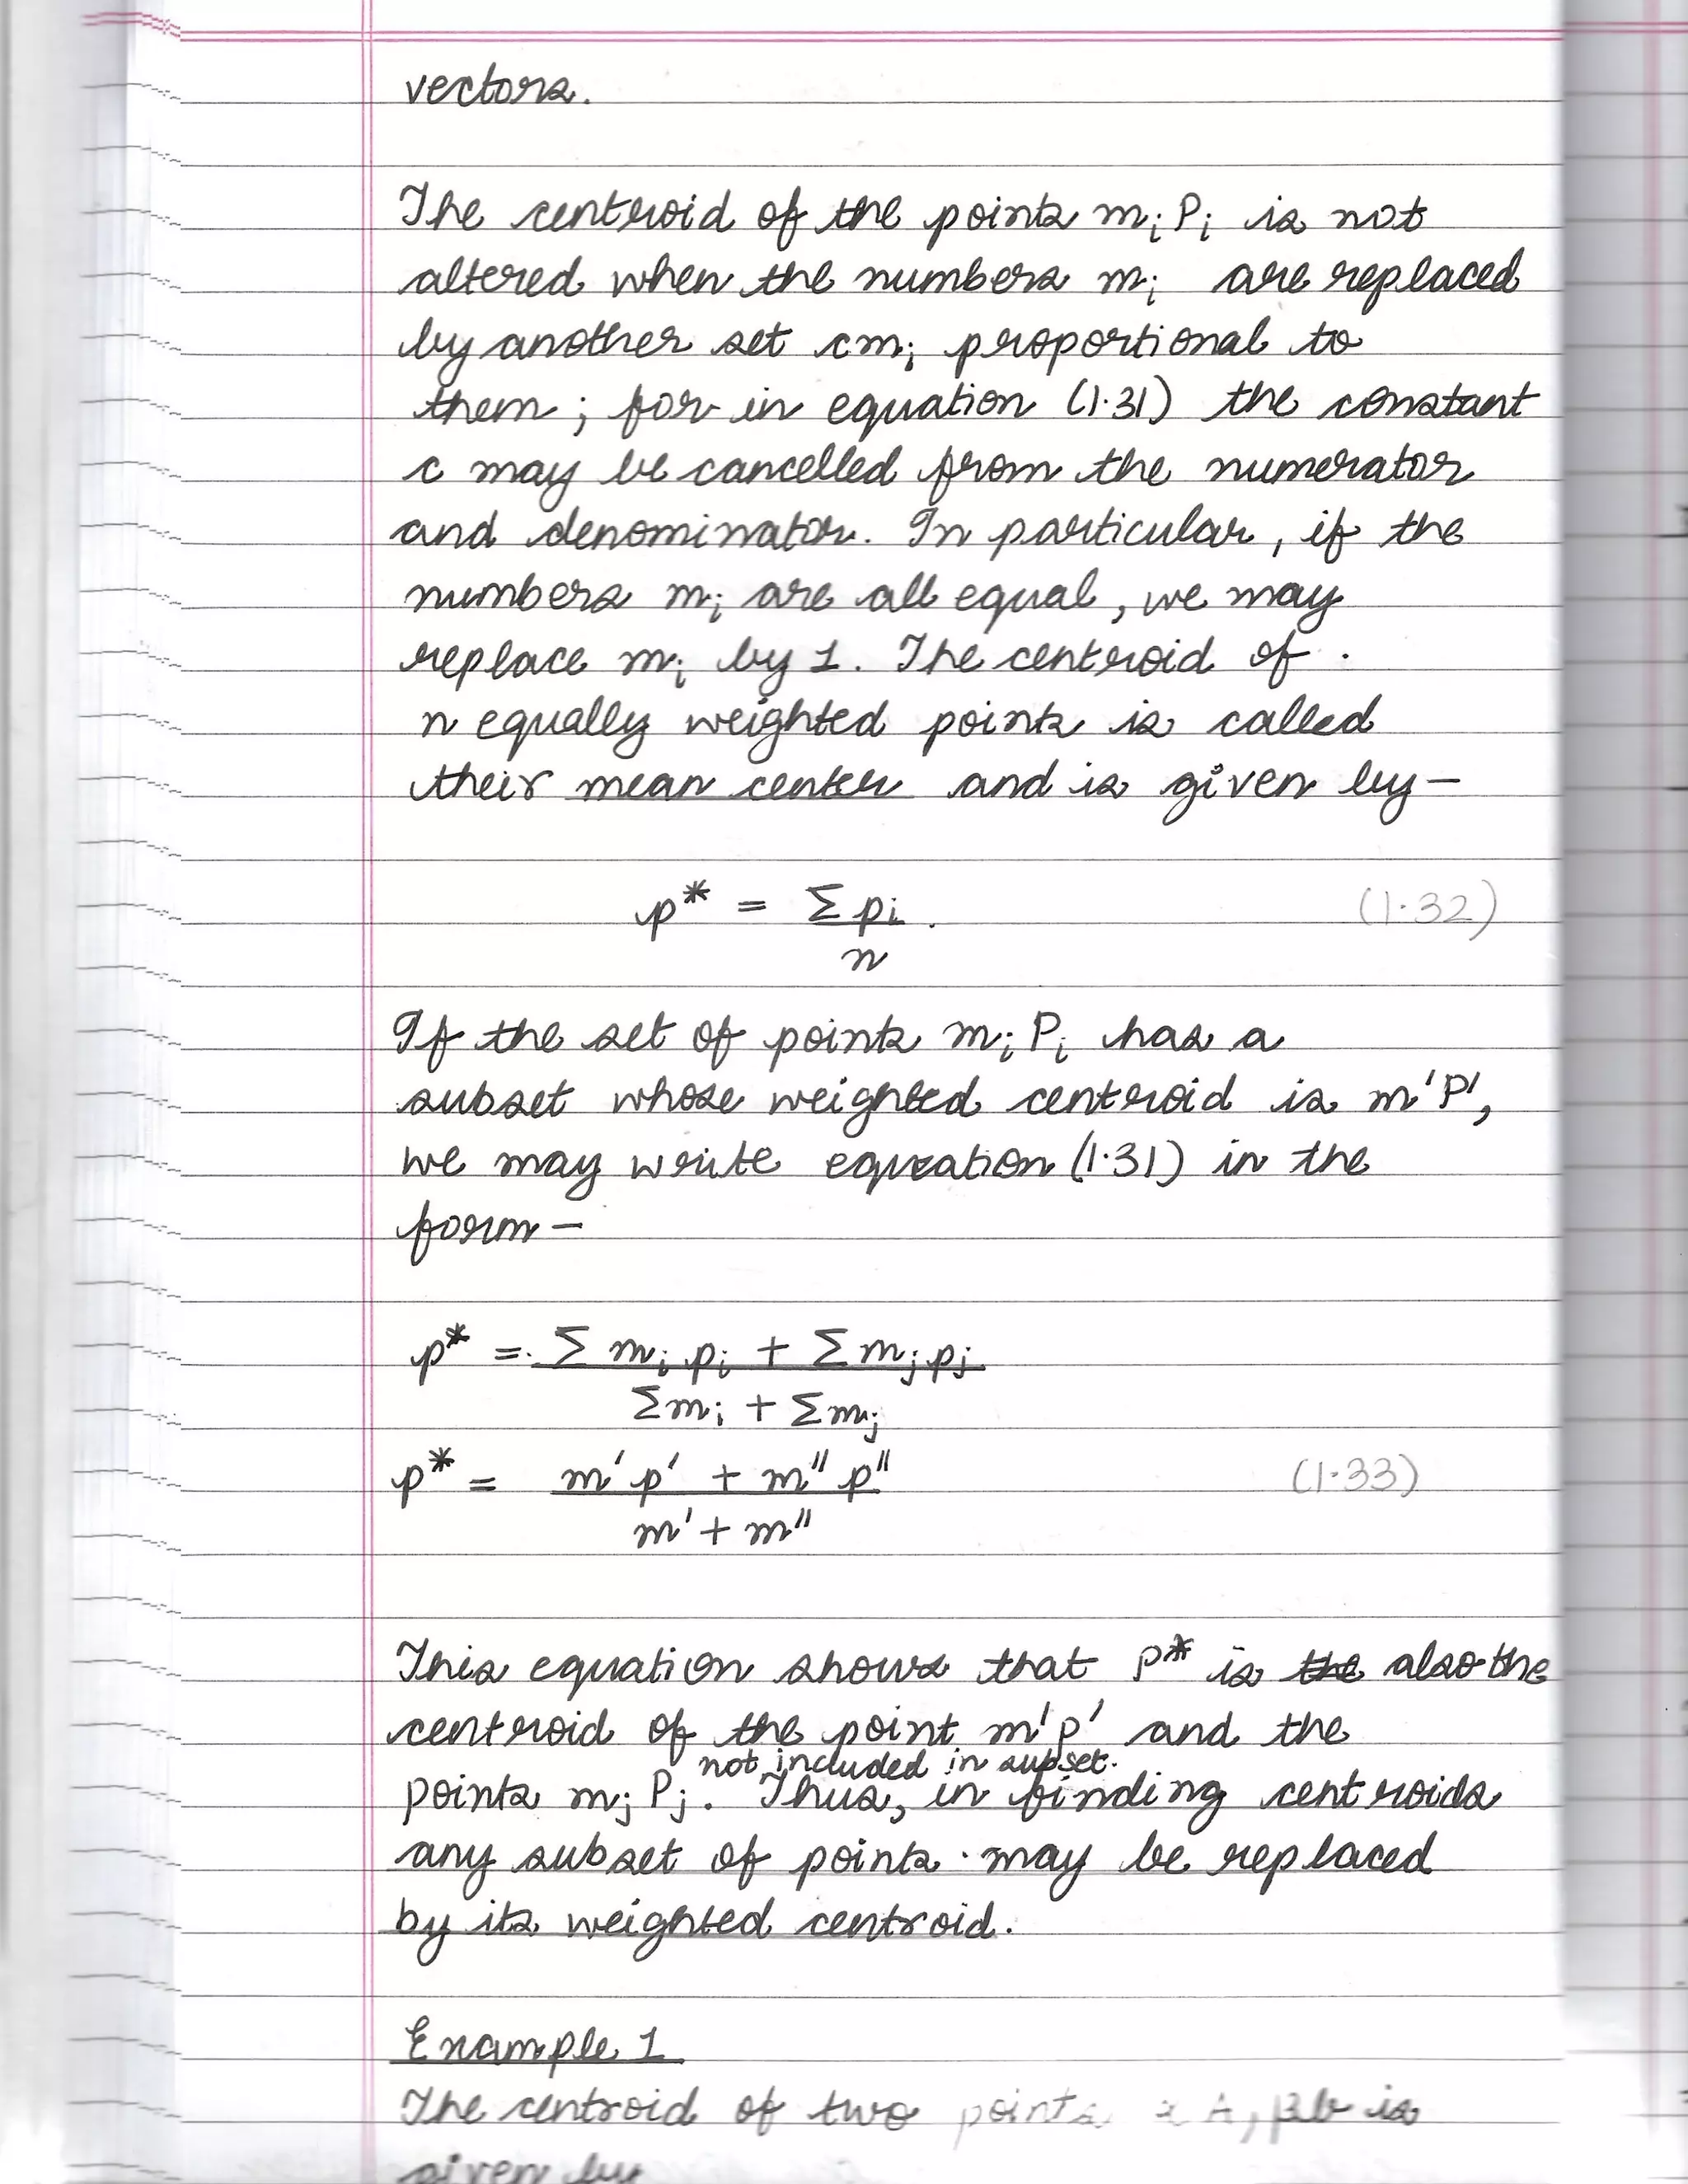 vectors.
The centroid of the points mᵢPᵢ is not
altered when the numbers mᵢ are replaced
by another set cmᵢ proportional to
them; for in equation (1.31) the constant
c may be cancelled from the numerator
and denominator. In particular, if the
numbers mᵢ are all equal, we may
replace mᵢ by 1. The centroid of
n equally weighted points is called
their mean center and is given by—
p* = Σpᵢ. (1.32)
n
If the set of points mᵢPᵢ has a
subset whose weighted centroid is m'P',
we may write equation (1.31) in the
form—
p* = Σmᵢpᵢ + Σmⱼpⱼ
Σmᵢ + Σmⱼ
p* = m'p' + m"p" (1.33)
m' + m"
This equation shows that P* is the also the
centroid of the point m'p' and the
not included in subset.
points mⱼPⱼ. Thus, in finding centroids
any subset of points may be replaced
by its weighted centroid.
Example 1
The centroid of two points A, βb is
given by